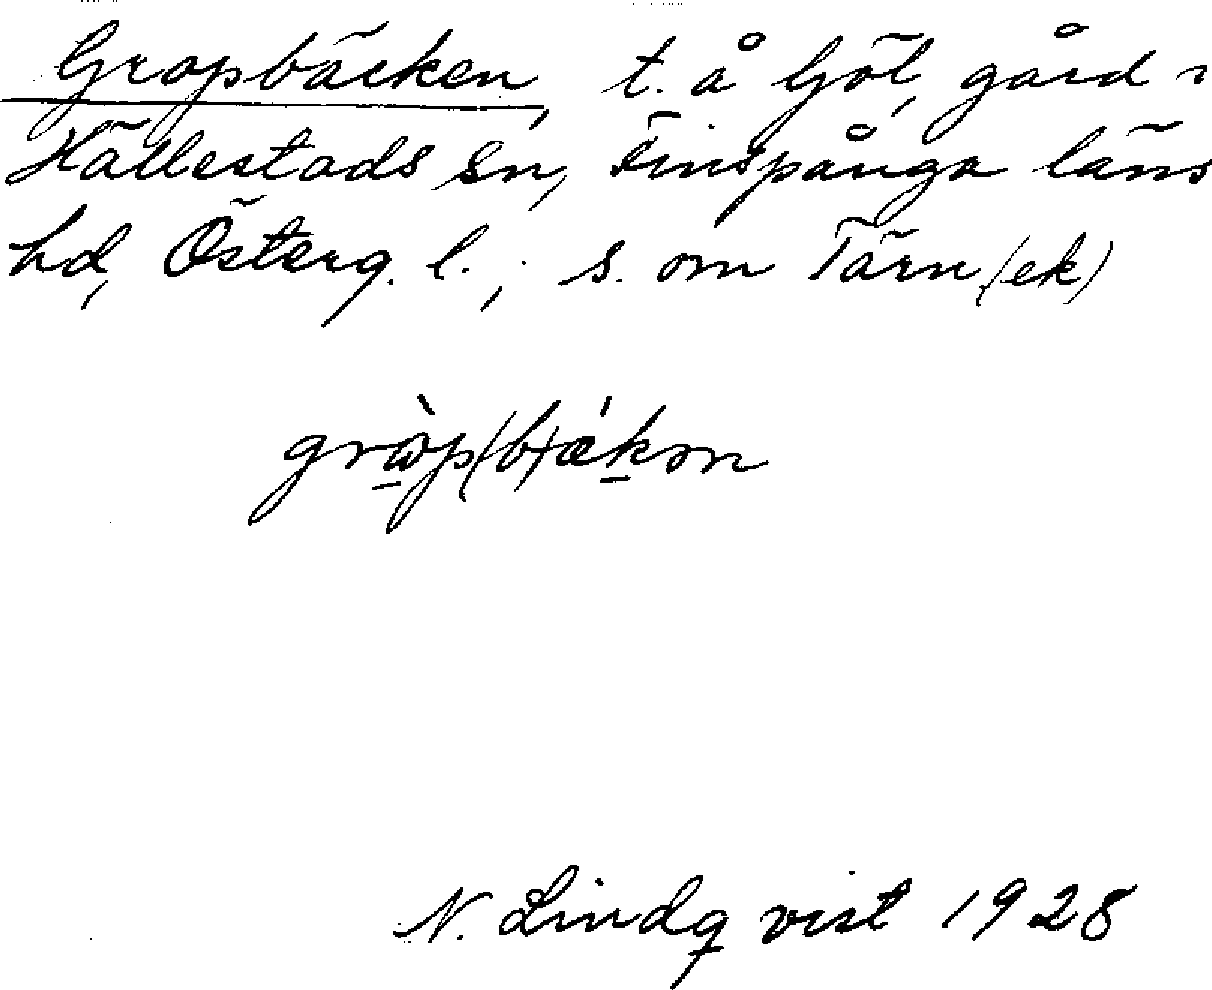 Gropbäcken, t. å Göl, gård i
Hällestads sn, Finspånga läns
hd, Österg. l., s. om Tärn(ek)
grɷ̀p(b)ǽkən
N. Lindqvist 1928